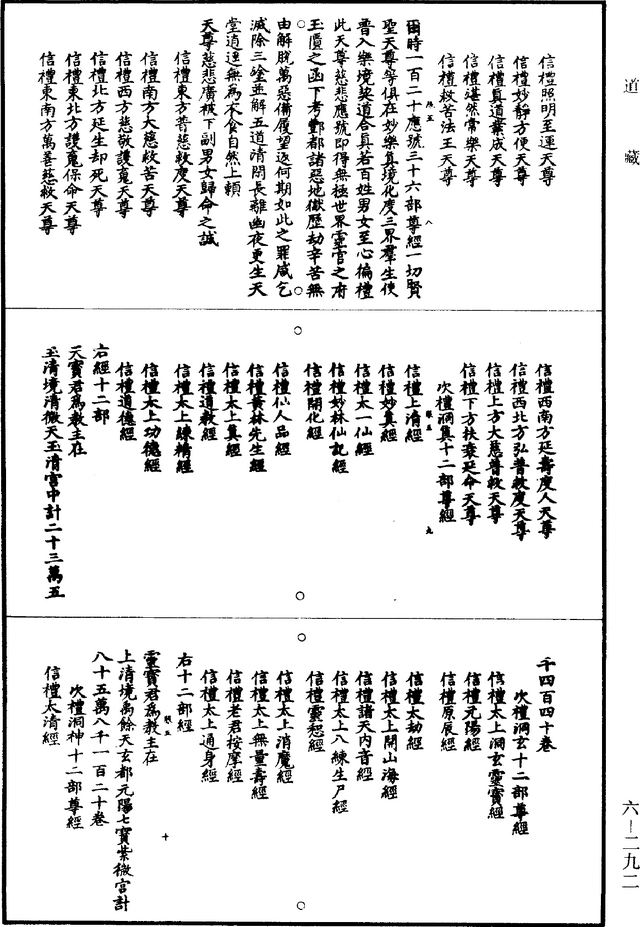 道藏
信禮照明至運天尊
信禮妙靜方便天尊
信禮真道業成天尊
信禮湛然常樂天尊
信禮救苦法王天尊
爾時一百二十應號三十六部尊經一切賢
聖天尊等俱在妙樂真境化度三界羣生使
普入樂境契道合真若百姓男女至心徧禮
此天尊慈悲應號即得無極世界靈官之府
玉匱之函下考酆都諸惡地獄歷劫辛苦無
由解脫萬惡備履望返何期如此之罪咸乞
滅除三塗並解五道清閑長離幽夜更生天
堂逍遥無為衣食自然上賴
天尊慈悲廣被下副男女歸命之誠
信禮東方普慈救度天尊
信禮南方大慈救苦天尊
信禮西方慈敬護魂天尊
信禮北方延生却死天尊
信禮東北方護魂保命天尊
信禮東南方萬善慈救天尊
八
信禮西南方延壽度人天尊
信禮西北方弘普救度天尊
信禮上方大慈普救天尊
信禮下方扶衰延命天尊
次禮洞真十二部尊經
信禮上清經
信禮妙真經
信禮太一仙經
信禮妙林仙記經
信禮開化經
信禮仙人品經
信禮黃林先生經
信禮太上真經
信禮道教經
信禮太上練精經
信禮太上功德經
信禮道德經
右經十二部
天寶君為教主在
玉清境清微天玉清宮中計二十三萬五
九
千四百四十卷
次禮洞玄十二部尊經
信禮太上洞玄靈寶經
信禮元陽經
信禮原辰經
信禮太劫經
信禮太上開山海經
信禮諸天内音經
信禮太上八練生尸經
信禮靈恕經
信禮太上消魔經
信禮太上無量壽經
信禮老君按摩經
信禮太上通身經
右十二部經
靈寶君為教主在
上清境禹餘天玄都元陽七寶紫微宮計
八十五萬八千一百二十卷
次禮洞神十二部尊經
信禮太清經
十
六—二九二